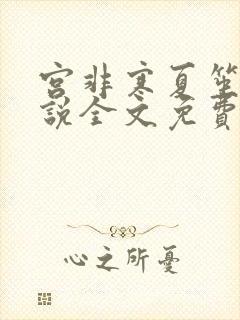 宫非寒夏笙
說全文免費
心之所憂